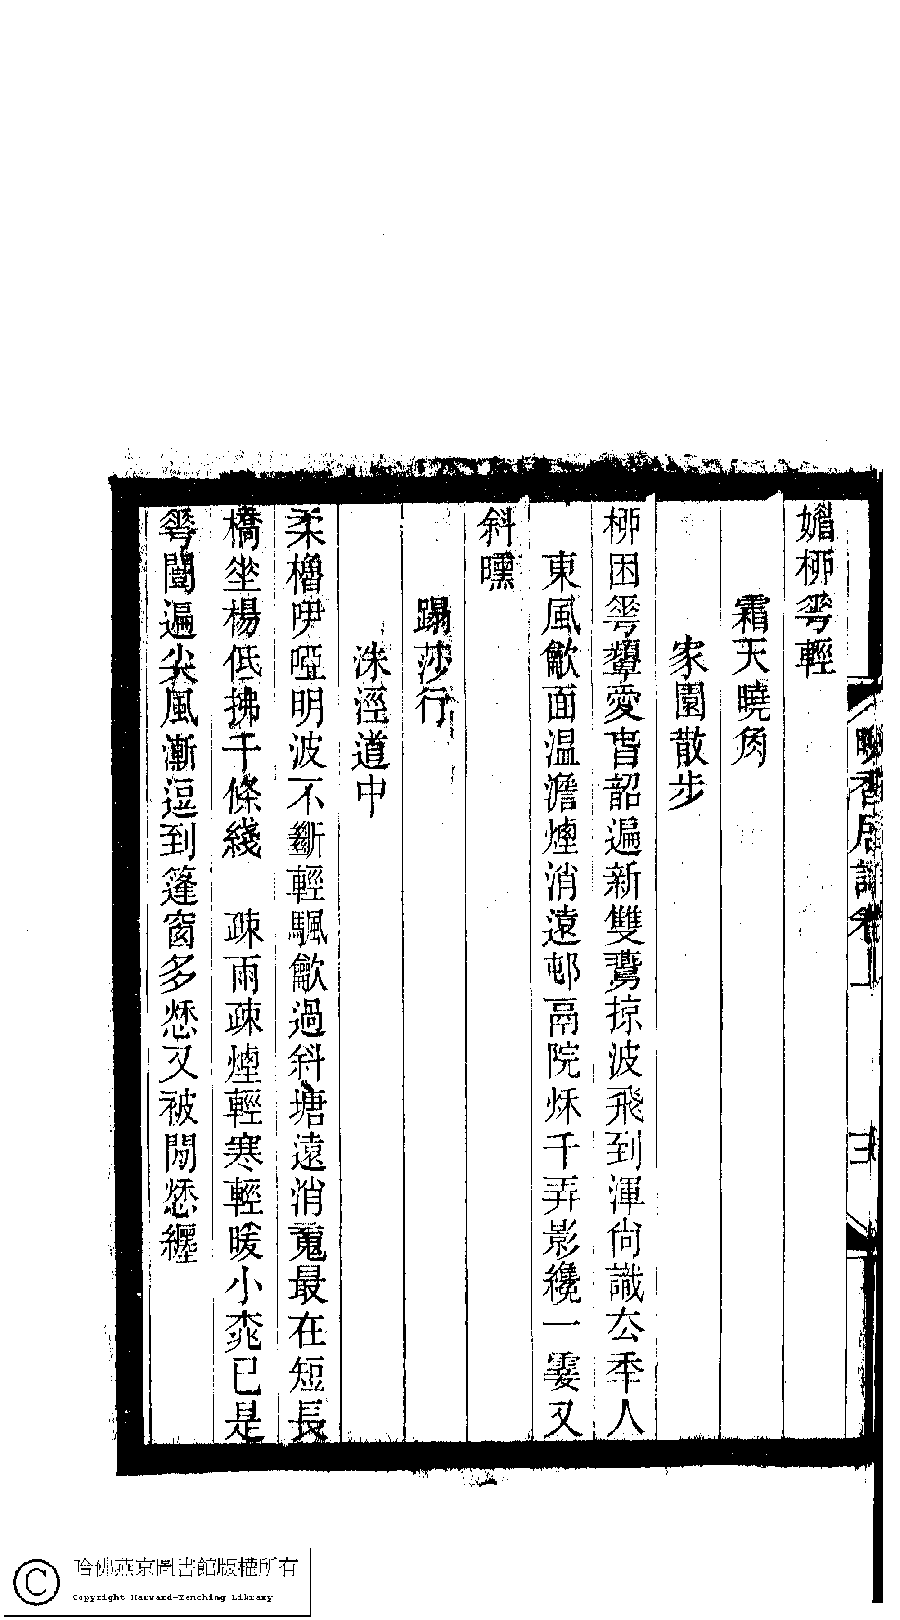 嬌桺䓁輕
霜天曉角
家園散步
桺困䓁顰愛昔韶遍新雙鷰掠波飛到渾尙識厺秊人
東風龡面温澹煙消遠邨鬲院秌千弄影纔一霎又
斜曛
蹋莎行
洙涇道中
柔櫓咿啞明波不斷輕颿龡過斜塘遠消蒐最在短長
橋坐楊低拂千條綫　疎雨疎煙輕寒輕暖小桃已是
䓁開遍尖風漸逗到篷窗多愁又被閒愁纒
聽香居詞卷上
三
哈佛燕京圖書館版權所有
Copyright Harvard-Yenching Library